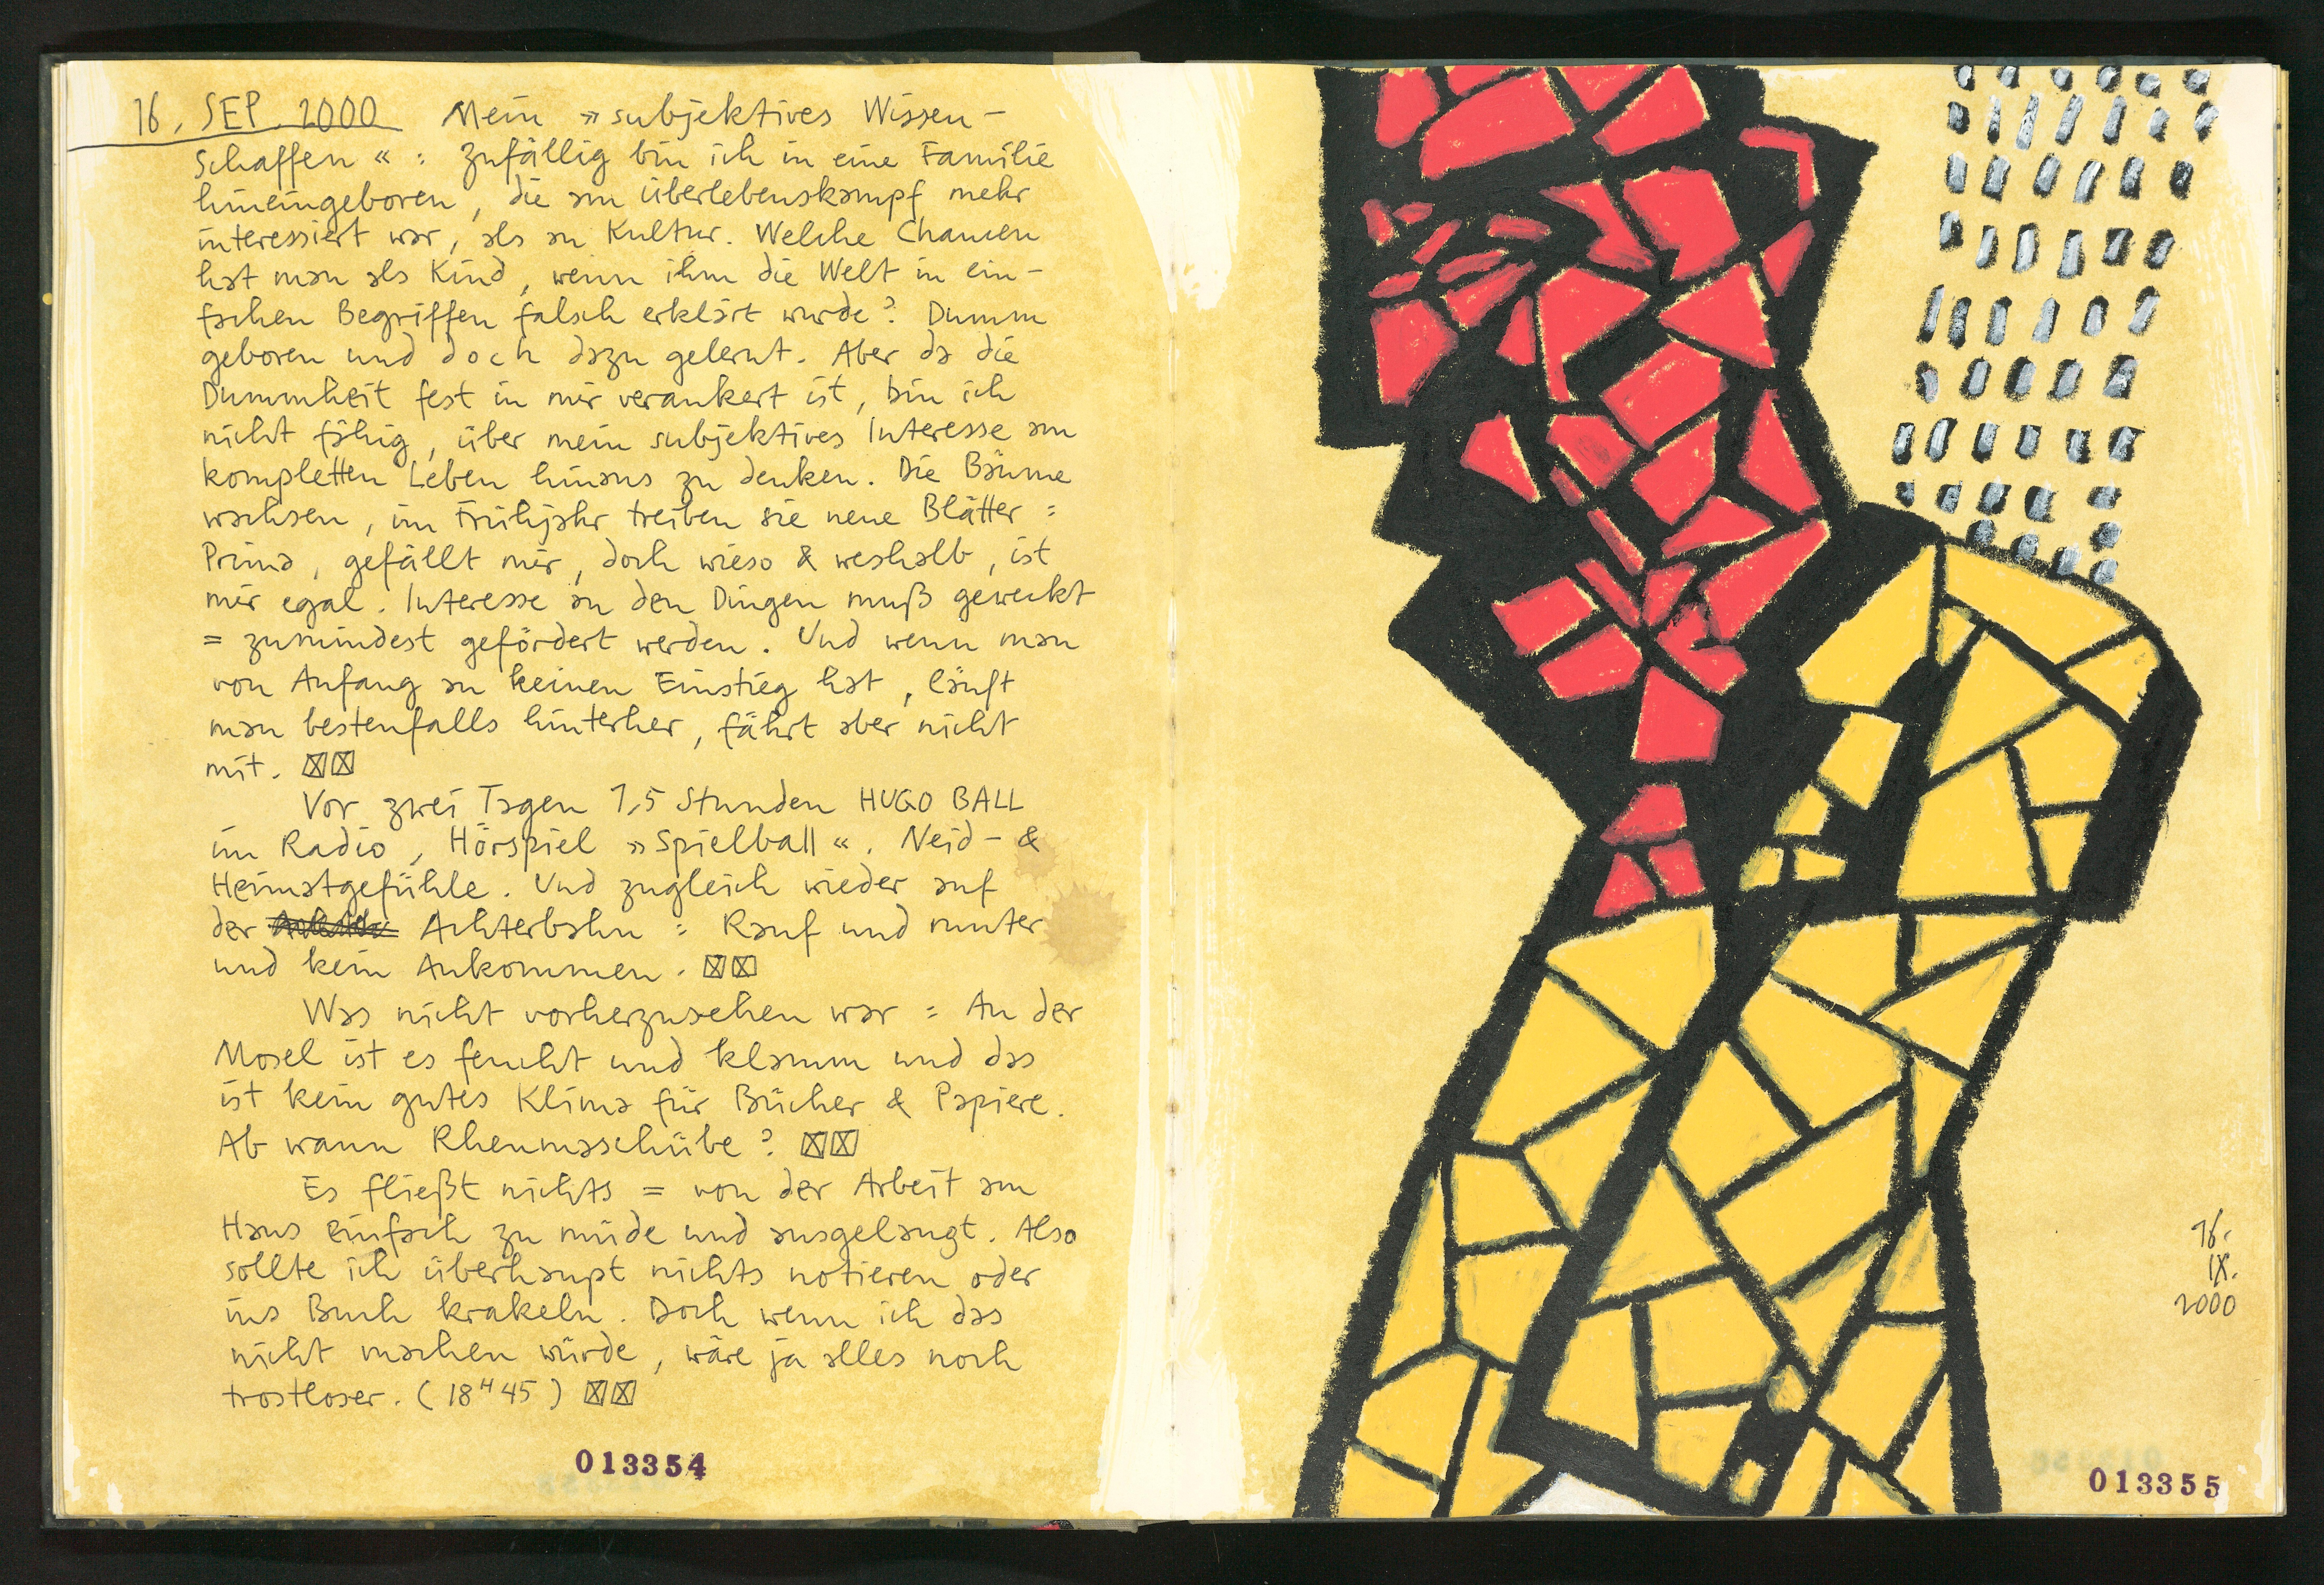 16. SEP. 2000 Mein »subjektives Wissen-
schaffen« : zufällig bin ich in eine Familie
hineingeboren, die am Überlebenskampf mehr
interessiert war, als an Kultur. Welche Chancen
hat man als Kind, wenn ihm die Welt in ein-
fachen Begriffen falsch erklärt wurde? Dumm
geboren und doch dazu gelernt. Aber da die
Dummheit fest in mir verankert ist, bin ich
nicht fähig, über mein subjektives Interesse am
kompletten Leben hinaus zu denken. Die Bäume
wachsen, im Frühjahr treiben sie neue Blätter =
Prima, gefällt mir, doch wieso & weshalb, ist
mir egal. Interesse an den Dingen muß geweckt
= zumindest gefördert werden. Und wenn man
von Anfang an keinen Einstieg hat, läuft
man bestenfalls hinterher, fährt aber nicht
mit. ☒☒
Vor zwei Tagen 1,5 Stunden HUGO BALL
im Radio, Hörspiel »Spielball«. Neid- &
Heimatgefühle. Und zugleich wieder auf
der Achterbahn = Rauf und runter
und kein Ankommen. ☒☒
Was nicht vorherzusehen war = An der
Mosel ist es feucht und klamm und das
ist kein gutes Klima für Bücher & Papiere.
Ab wann Rheumaschübe? ☒☒
Es fließt nichts = von der Arbeit am
Haus einfach zu müde und ausgelaugt. Also
sollte ich überhaupt nichts notieren oder
ins Buch krakeln. Doch wenn ich das
nicht machen würde, wäre ja alles noch
trostloser. (18ᴴ45) ☒☒
013354
16.
IX.
2000
013355